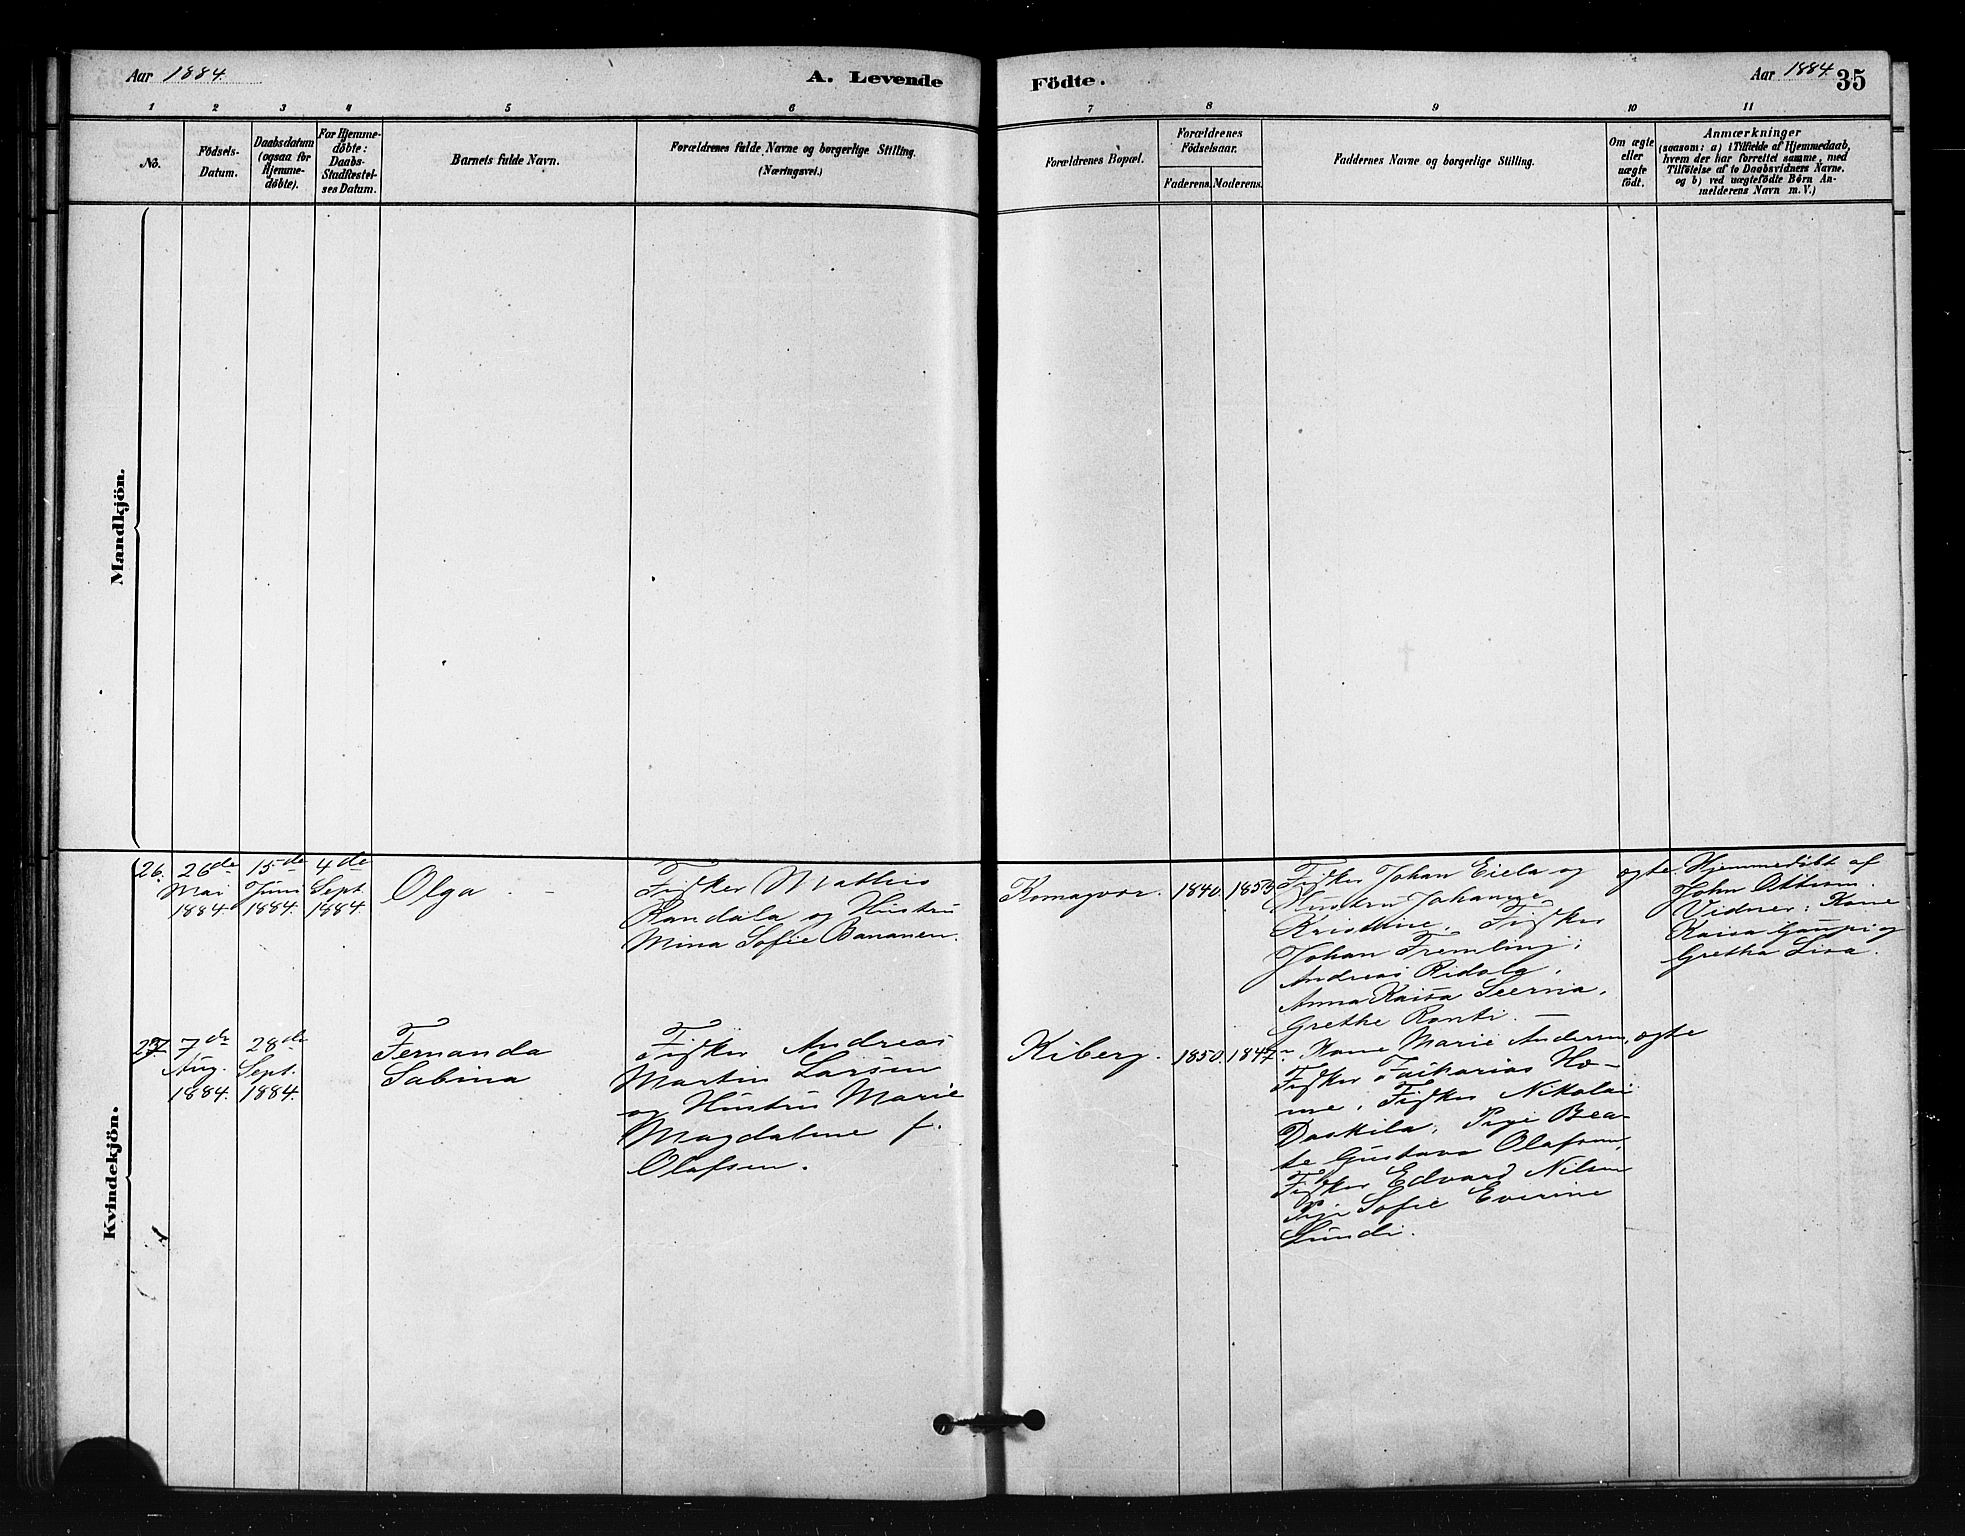 Aar 1884.
A. Levende
Födte.
Aar 1884. 35
1 2 3 4 5 6 7 8 9 10 11
No.
Födsels-
Datum.
Daabsdatum
(ogsaa for
Hjemme-
døbte).
For Hjemme-
døbte:
Daabs-
Stadfæstel-
ses Datum.
Barnets fulde Navn.
Forældrenes fulde Navne og borgerlige Stilling.
(Næringsvei.)
Forældrenes Bopæl.
Forældrenes
Födselsaar.
Faderens. Moderens.
Faddernes Navne og borgerlige Stilling.
Om ægte
eller
uægte
födt.
Anmærkninger
(saasom: a) i Tilfælde af Hjemmedaab,
hvem der har forrettet samme, med
Tilföielse af to Daabsvidners Navne.
og b) ved uægtefödte Börn An-
melderens Navn m. V.)
Mandkjön.
Kvindekjön.
26.
26de
Mai
1884.
15de
Juni
1884.
4de
Sept.
1884.
Olga
Fisker Mathis
Randala og Hustru
Mina Sofie Bananen.
Komagvær.
1840.
1853
Fisker Johan Eiela og
Hustru Johanne
Kristine, Fisker
Johan Fremling;
Andreas Ridala,
Anna Kaisa Seerna,
Grethe Ranti.
ægte.
Hjemmedöbt af
John Ottesen.
Vidner: Kone
Kaisa Gaupi og
Gretha Lisa.
27
7de
Aug.
1884.
28de
Sept.
1884.
Fernanda
Sabina
Fisker Andreas
Martin Larsen
og Hustru Marie
Magdalene f.
Olafsen.
Kiberg.
1850.
1847
Kone Marie Andersen,
Fisker Zacharias Ho-
me, Fisker Nikolai
Daskila, Pige Bea-
te Gustava Olafsen,
Fisker Edvard Nilsen
Pige Sofie Everine
Lundi.
ægte